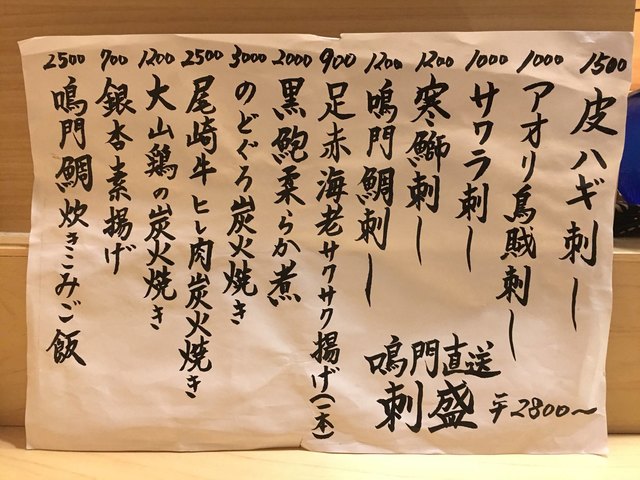 1500 皮ハギ刺し
1000 アオリ烏賊刺し
1000 サワラ刺し
1200 寒鰤刺し
1200 鳴門鯛刺し
鳴門直送
刺盛 〒2800〜
900 足赤海老サクサク揚げ(一本)
2000 黒鮑柔らか煮
3000 のどぐろ炭火焼き
2500 尾崎牛ヒレ肉炭火焼き
1200 大山鶏の炭火焼き
700 銀杏素揚げ
2500 鳴門鯛炊きこみご飯